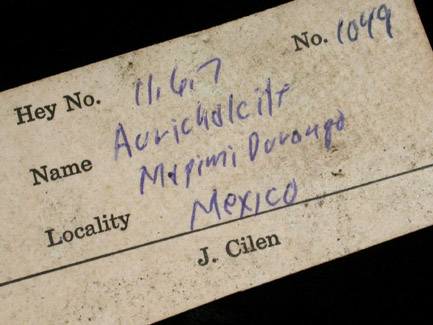 Hey No. 11.6.7 No. 1049
Name Aurichalcite
Mapimi Durango
Locality Mexico
J. Cilen